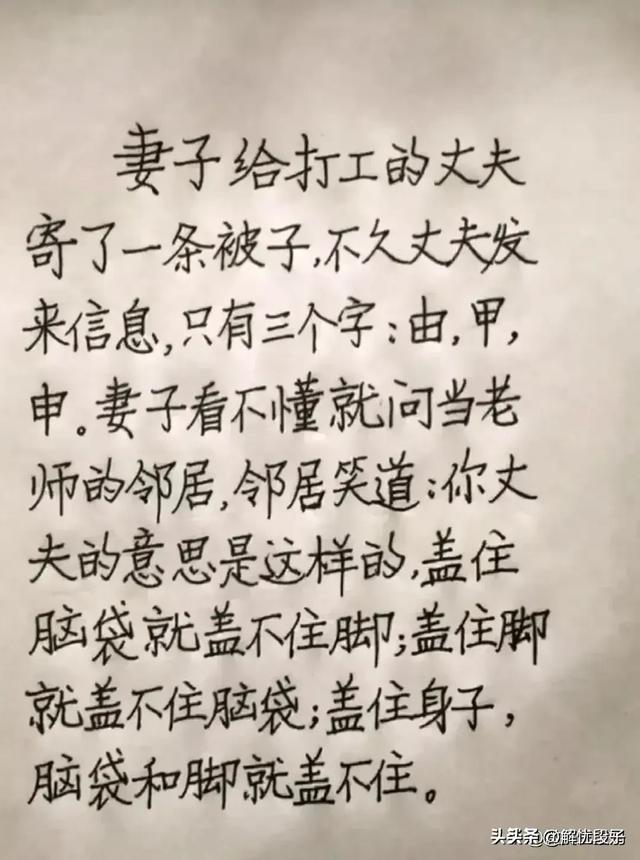 妻子给打工的丈夫
寄了一条被子,不久丈夫发
来信息,只有三个字:由,甲,
申。妻子看不懂就问当老
师的邻居,邻居笑道:你丈
夫的意思是这样的,盖住
脑袋就盖不住脚;盖住脚
就盖不住脑袋;盖住身子,
脑袋和脚就盖不住。
头条@解忧段子